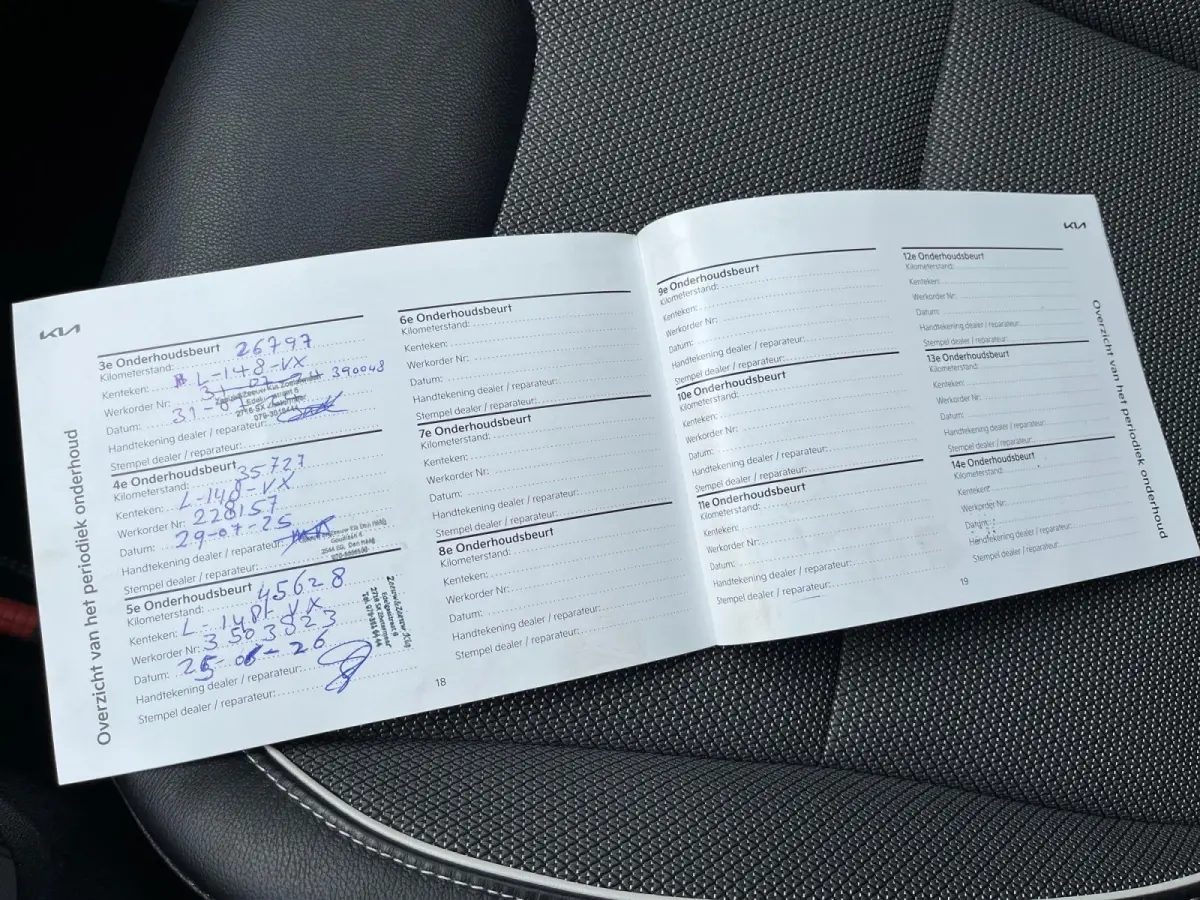 KIA
Overzicht van het periodiek onderhoud
3e Onderhoudsbeurt
Kilometerstand: 26797
Kenteken: L-148-VX
Werkorder Nr: 390048
Datum: 31-
Handtekening dealer / reparateur:
Stempel dealer / reparateur:
4e Onderhoudsbeurt
Kilometerstand: 35727
Kenteken: L-148-VX
Werkorder Nr: 228157
Datum: 29-07-25
Handtekening dealer / reparateur:
Stempel dealer / reparateur:
5e Onderhoudsbeurt
Kilometerstand: 45628
Kenteken: L-148-VX
Werkorder Nr: 3503823
Datum: 25-06-26
Handtekening dealer / reparateur:
Stempel dealer / reparateur:
6e Onderhoudsbeurt
Kilometerstand:
Kenteken:
Werkorder Nr:
Datum:
Handtekening dealer / reparateur:
Stempel dealer / reparateur:
7e Onderhoudsbeurt
Kilometerstand:
Kenteken:
Werkorder Nr:
Datum:
Handtekening dealer / reparateur:
Stempel dealer / reparateur:
8e Onderhoudsbeurt
Kilometerstand:
Kenteken:
Werkorder Nr:
Datum:
Handtekening dealer / reparateur:
Stempel dealer / reparateur:
18
9e Onderhoudsbeurt
Kilometerstand:
Kenteken:
Werkorder Nr:
Datum:
Handtekening dealer / reparateur:
Stempel dealer / reparateur:
10e Onderhoudsbeurt
Kilometerstand:
Kenteken:
Werkorder Nr:
Datum:
Handtekening dealer / reparateur:
Stempel dealer / reparateur:
11e Onderhoudsbeurt
Kilometerstand:
Kenteken:
Werkorder Nr:
Datum:
Handtekening dealer / reparateur:
Stempel dealer / reparateur:
KIA
12e Onderhoudsbeurt
Kilometerstand:
Kenteken:
Werkorder Nr:
Datum:
Handtekening dealer / reparateur:
Stempel dealer / reparateur:
13e Onderhoudsbeurt
Kilometerstand:
Kenteken:
Werkorder Nr:
Datum:
Handtekening dealer / reparateur:
Stempel dealer / reparateur:
14e Onderhoudsbeurt
Kilometerstand:
Kenteken:
Werkorder Nr:
Datum:
Handtekening dealer / reparateur:
Stempel dealer / reparateur:
19
Overzicht van het periodiek onderhoud